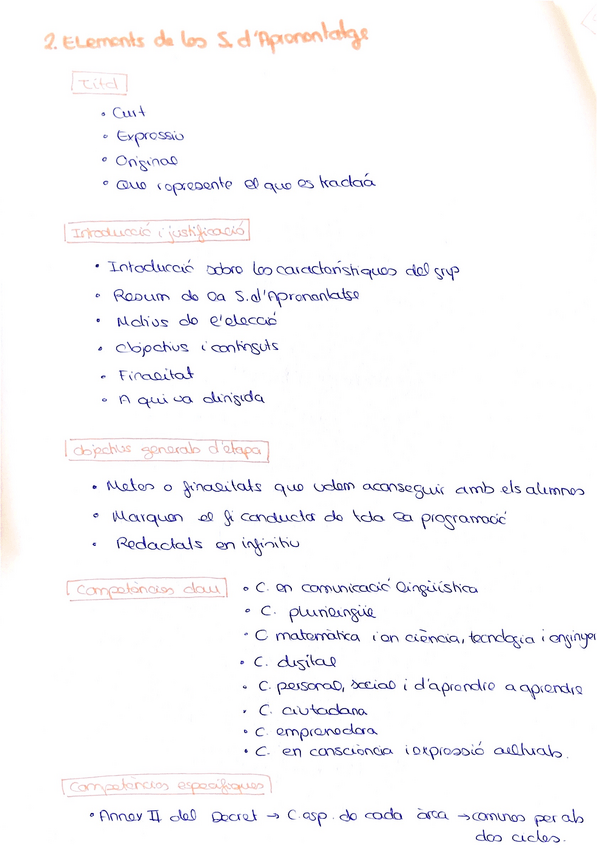 2. Elements de les S. d'Aprenentatge
Títol
• Curt
• Expressiu
• Original
• Que represente el que es tractarà
Introducció i justificació
• Intoducció sobre les característiques del grup
• Resum de la S. d'Aprenentatge
• Motius de l'elecció
• Objectius i continguts
• Finalitat
• A qui va dirigida
Objectius generals d'etapa
• Metes o finalitats que volem aconseguir amb els alumnes
• Marquen el fi conductor de tota la programació
• Redactats en infinitiu
Competències clau • C. en comunicació lingüística
• C. plurilingüe
• C matemàtica i en ciència, tecnologia i enginyer
• C. digital
• C. personal, social i d'aprendre a aprendre
• C. ciutadana
• C. emprenedora
• C. en consciència i expressió culturals.
Competències específiques
• Annex II del Decret → C. esp. de cada àrea → comunes per als
dos cicles.